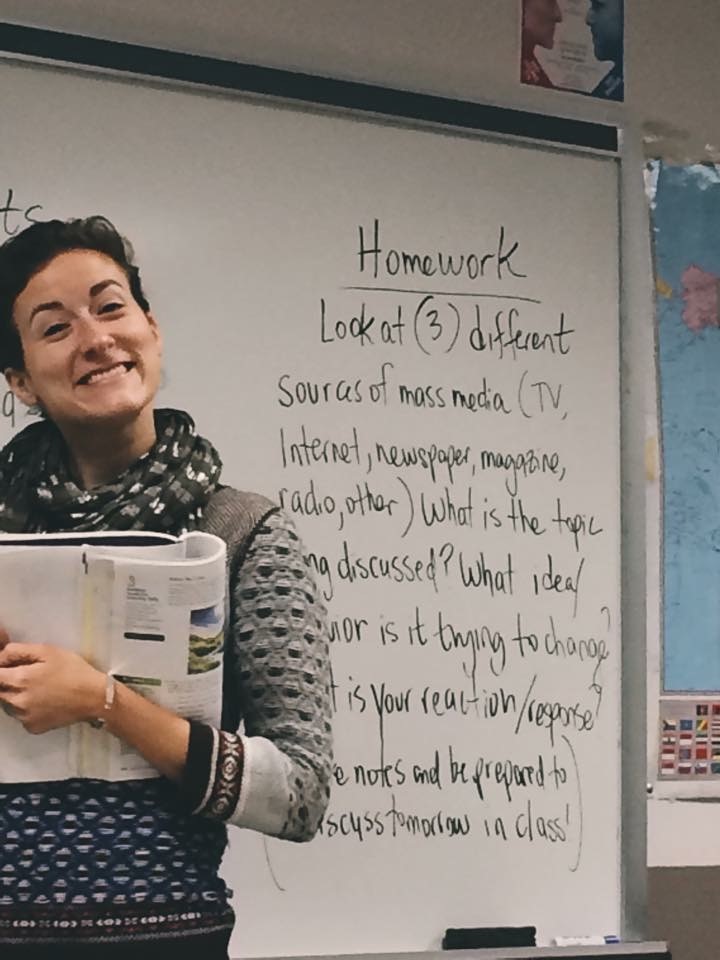 ts
Homework
Look at (3) different
sources of mass media (TV,
Internet, newspaper, magazine,
radio, other) What is the topic
ng discussed? What idea/
vior is it trying to change?
t is your reaction/response?
e notes and be prepared to
iscuss tomorrow in class!)